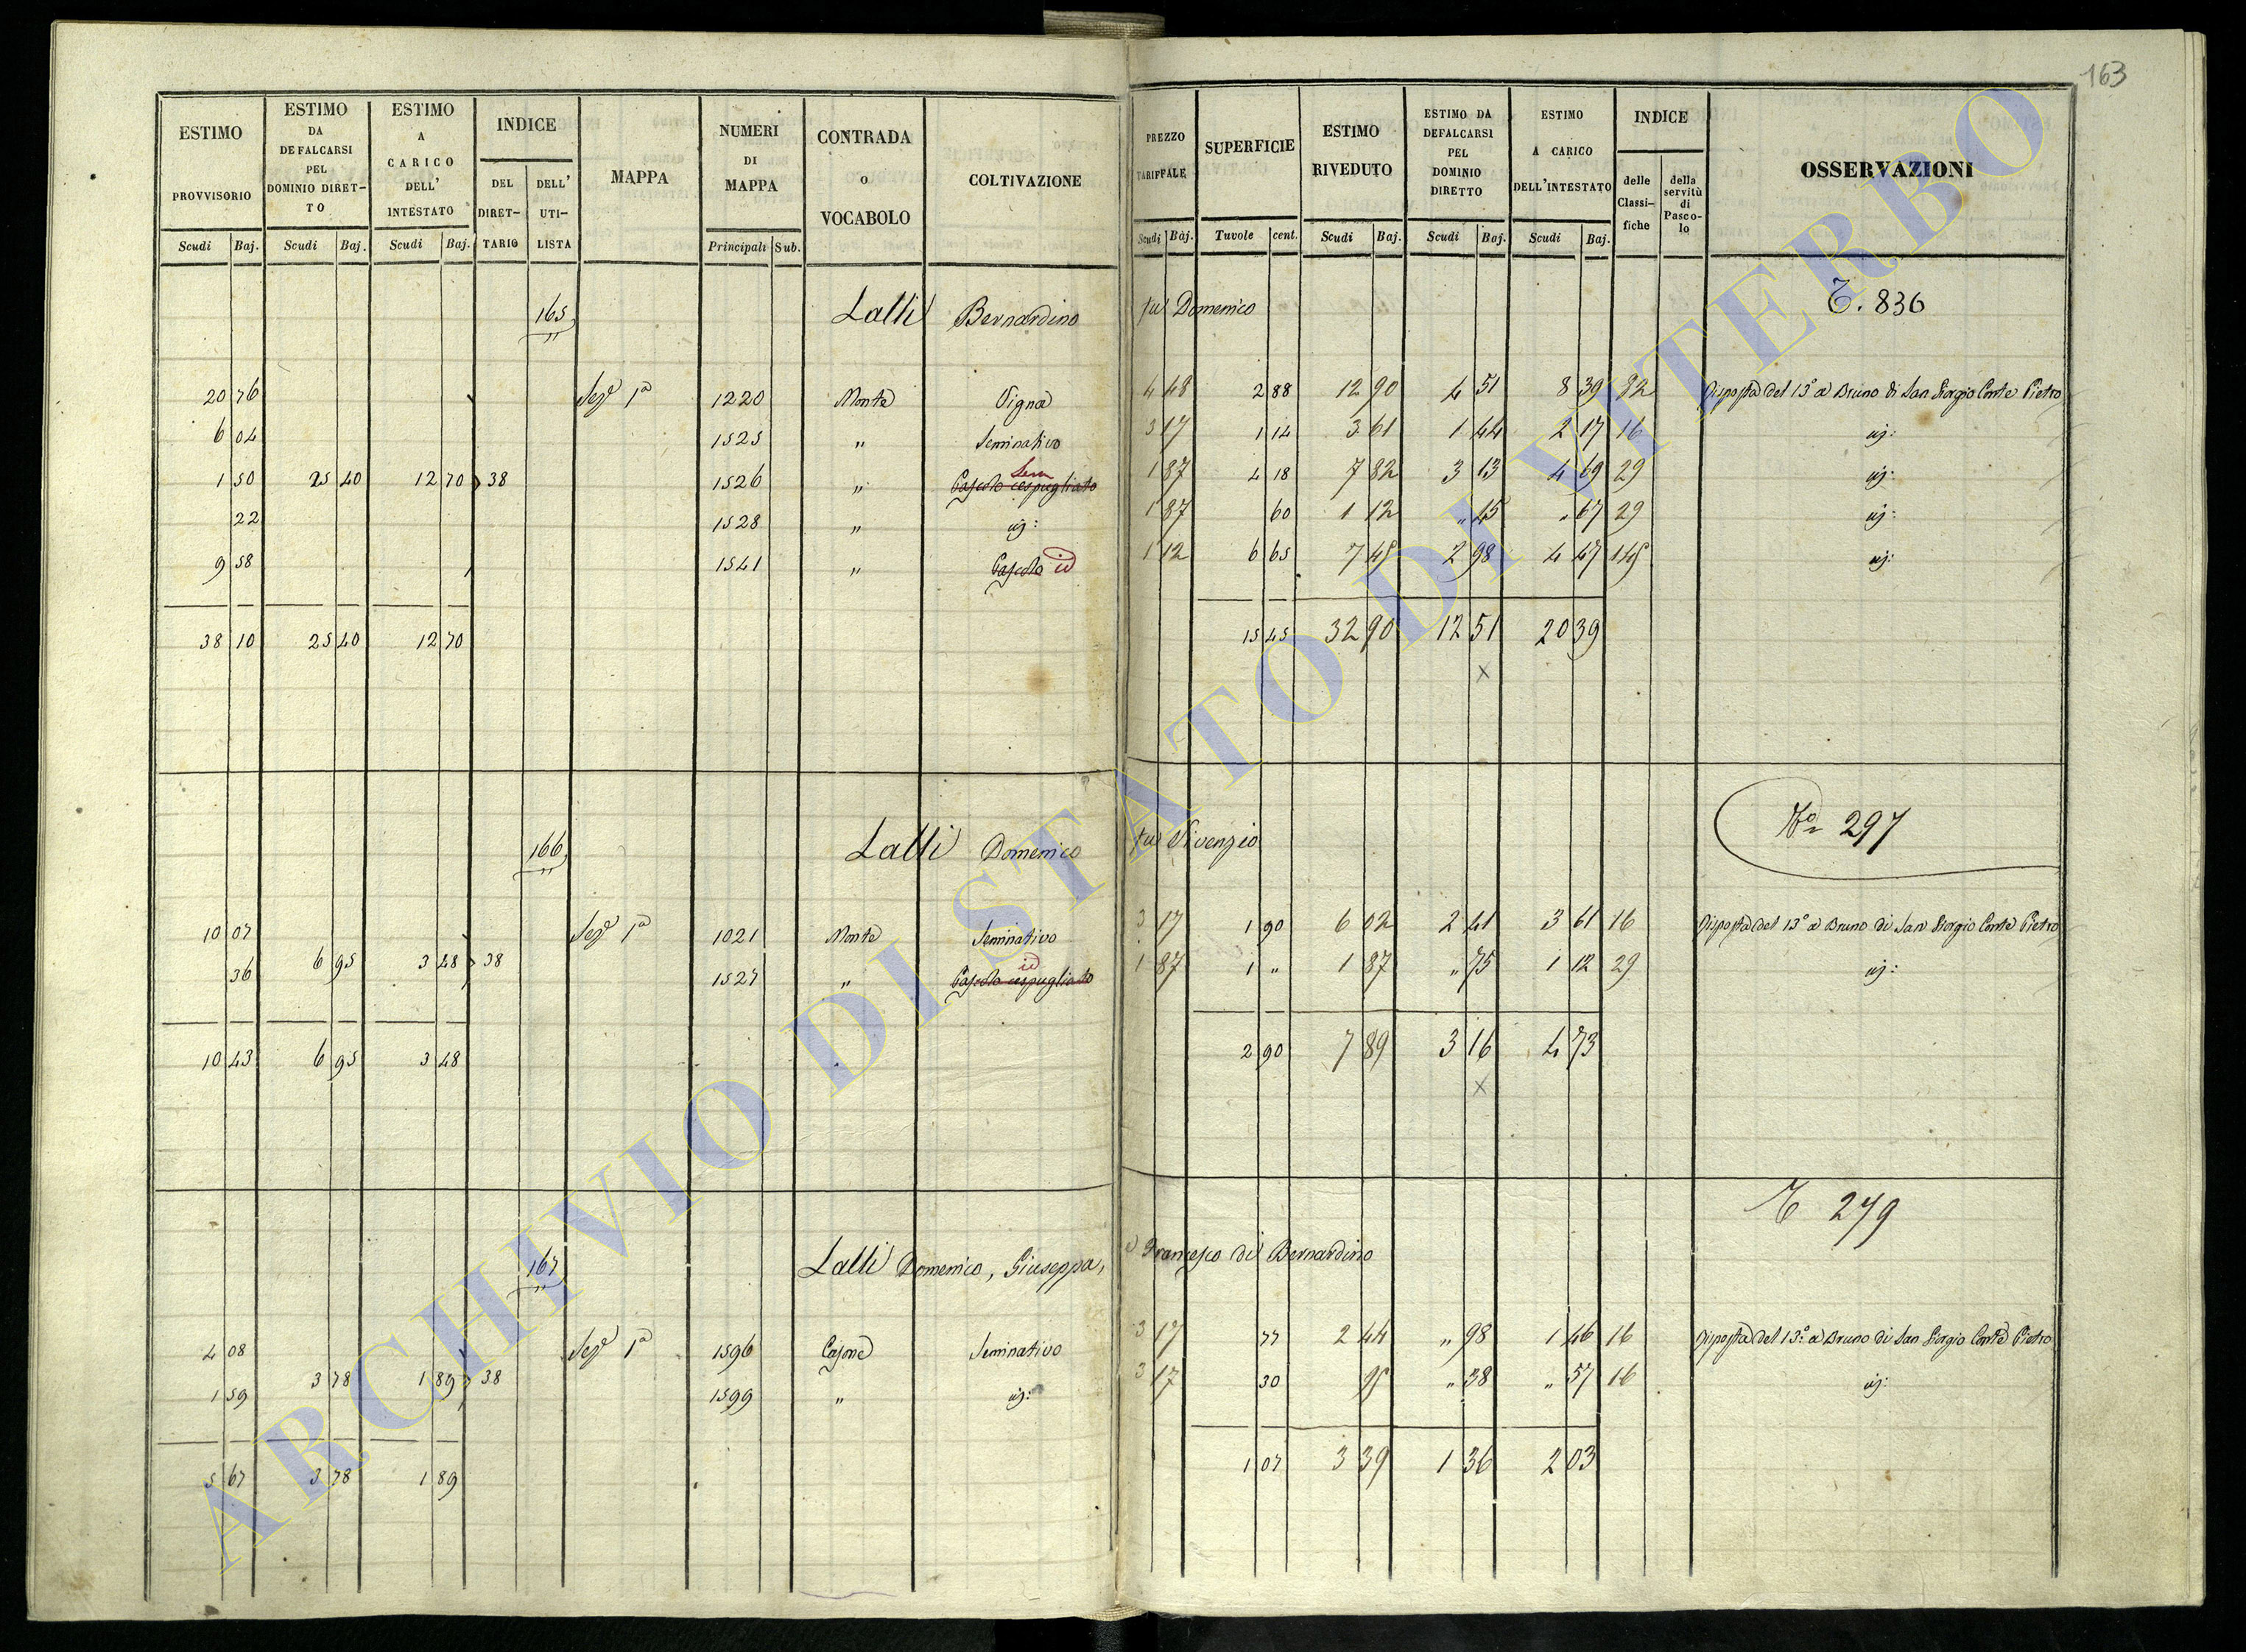 163
ESTIMO PROVVISORIO | ESTIMO DA DEFALCARSI PEL DOMINIO DIRETTO | ESTIMO A CARICO DELL' INTESTATO | INDICE DEL DIRETTARIO | DELL' UTILISTA | MAPPA | NUMERI DI MAPPA | CONTRADA o VOCABOLO | COLTIVAZIONE | PREZZO TARIFFALE | SUPERFICIE | ESTIMO RIVEDUTO | ESTIMO DA DEFALCARSI PEL DOMINIO DIRETTO | ESTIMO A CARICO DELL'INTESTATO | INDICE delle Classifiche | della servitù di Pascolo | OSSERVAZIONI
Scudi Baj. | Scudi Baj. | Scudi Baj. | Principali Sub. | Scudi Baj. | Tavole cent. | Scudi Baj. | Scudi Baj. | Scudi Baj.
165 Lalli Bernardino fu Domenico T. 836
20 76 Sez.e 1a 1220 Monte Vigna 4 48 2 88 12 90 4 51 8 39 32 Risposta del 13° a Bruno di San Giorgio Conte Pietro
6 04 1525 " Seminativo 3 17 1 14 3 61 1 44 2 17 16 id:
1 50 25 40 12 70 38 1526 " Pascolo cespugliato Sem 1 87 4 18 7 82 3 13 4 69 29 id:
22 1528 " id: 1 87 60 1 12 " 45 " 67 29 id:
9 58 1541 " Pascolo id 1 12 6 65 7 45 2 98 4 47 145 id:
38 10 25 40 12 70 15 45 32 90 12 51 20 39
x
166 Lalli Domenico fu Vivenzio No 297
10 07 Sez.e 1a 1021 Monte Seminativo 3 17 1 90 6 02 2 41 3 61 16 Risposta del 13° a Bruno di San Giorgio Conte Pietro
36 6 95 3 48 38 1527 " Pascolo cespugliato id 1 87 1 " 1 87 " 75 1 12 29 id:
10 43 6 95 3 48 2 90 7 89 3 16 4 73
x
T 279
167 Lalli Domenico, Giuseppa, e Francesco di Bernardino
4 08 Sez.e 1a 1596 Casone Seminativo 3 17 77 2 44 " 98 1 46 16 Risposta del 13° a Bruno di San Giorgio Conte Pietro
1 59 3 78 1 89 38 1599 " id: 3 17 30 95 " 38 " 57 16 id:
5 67 3 78 1 89 1 07 3 39 1 36 2 03
ARCHIVIO DI STATO DI VITERBO